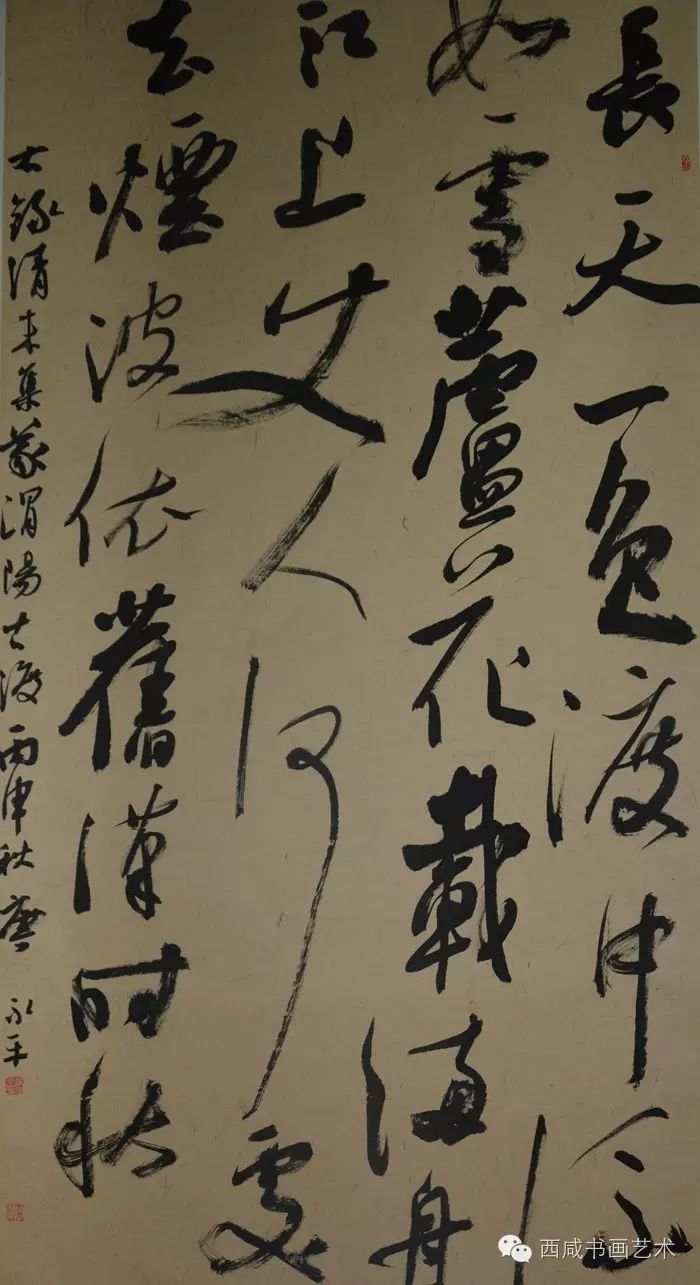 長天一色渡中流
如雪蘆花載滿舟
江上丈人何處
去煙波依舊漢時秋
右錄清朱集義渭陽古渡丙申秋 永平
西咸书画艺术